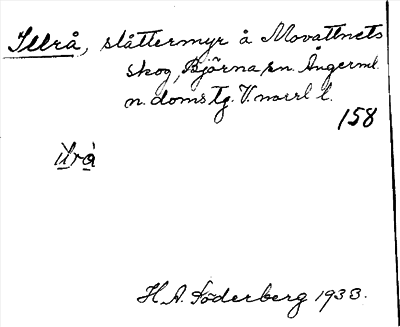 Illrå, slåttermyr å Movattnets
skog, Björna sn. Ångerml.
n. doms tg. V. norrl l.
158
ılrå
H. A. Söderberg 1933.